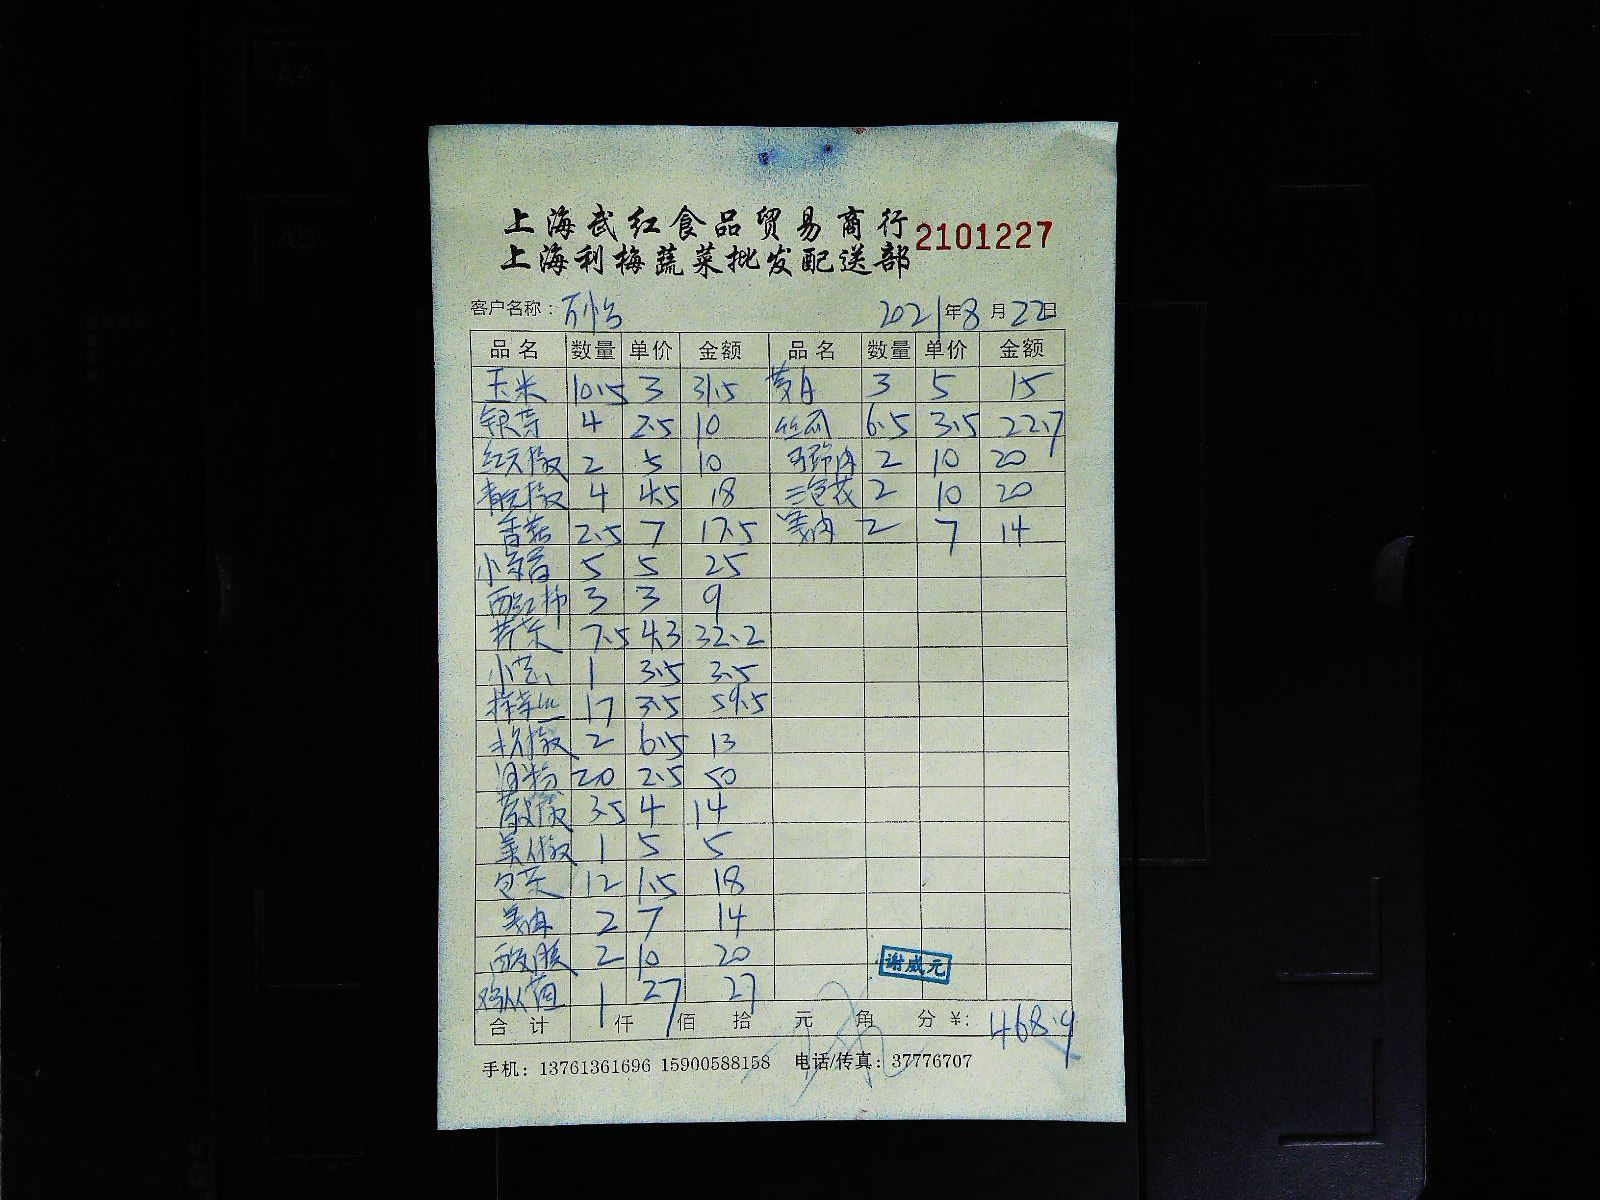 上海武红食品贸易商行 2101227
上海利梅蔬菜批发配送部
客户名称： 2021年8月22日
品名 数量 单价 金额 品名 数量 单价 金额
玉米 10.5 3 31.5 茭白 3 5 15
银芽 4 2.5 10 丝瓜 6.5 3.5 22.7
红尖椒 2 5 10 2 10 20
青尖椒 4 4.5 18 三色花 2 10 20
香菇 2.5 7 17.5 姜肉 2 7 14
小 5 5 25
西红柿 3 3 9
芹菜 7.5 4.3 32.2
小芯 1 3.5 3.5
榨菜丝 17 3.5 59.5
椒 2 6.5 13
河粉 20 2.5 50
3.5 4 14
美人椒 1 5 5
包菜 12 1.5 18
姜肉 2 7 14
2 10 20
鸡从菌 1 27 27
谢威元
合计 仟 佰 拾 元 角 分 ¥: 468.9
手机：13761361696 15900588158 电话/传真：37776707